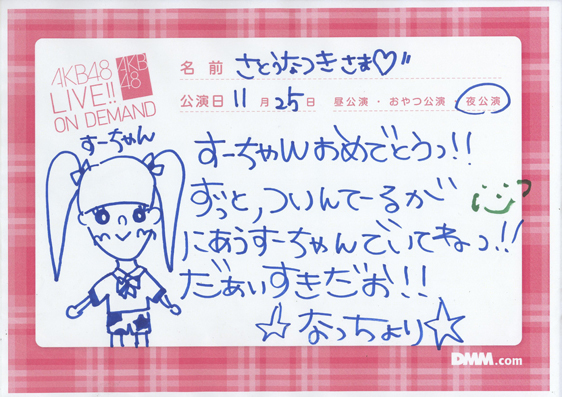 AKB48
LIVE!!
ON DEMAND
AKB
48
名前 さとうなつきさま♡"
公演日 11月25日 昼公演・おやつ公演・夜公演
すーちゃん
すーちゃんおめでとうっ!!
ずっと,ついんてーるが
にあうすーちゃんでいてねっ!!
だぁいすきだお!!
☆なっちょり☆
DMM.com